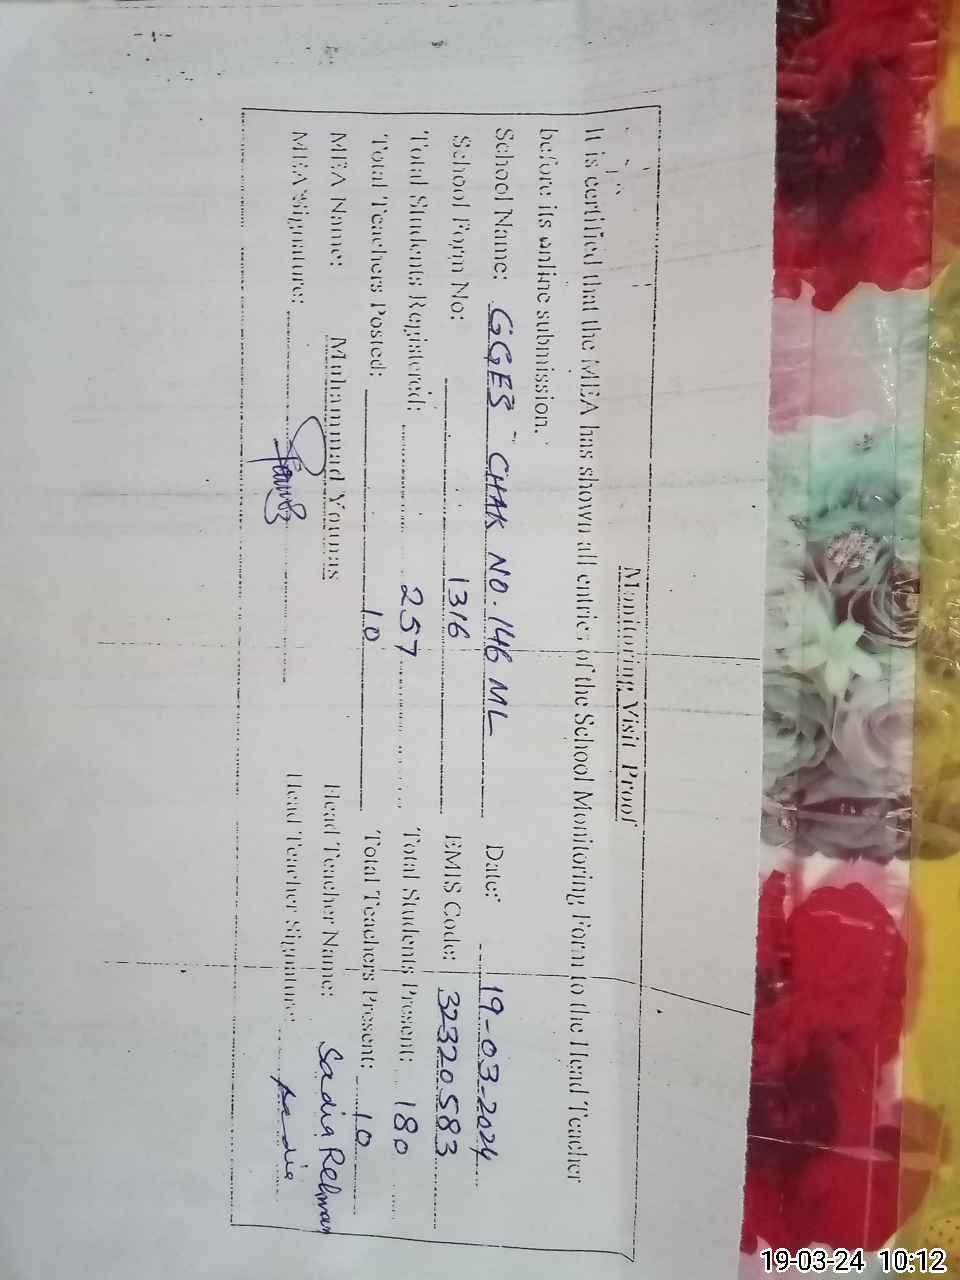 Monitoring Visit Proof
It is certified that the MEA has shown all entries of the School Monitoring Form to the Head Teacher
before its online submission.
School Name: GGES CHAK NO. 146 ML Date: 19-03-2024
School Form No: 1316 EMIS Code: 32320583
Total Students Registered: 257 Total Students Present: 180
Total Teachers Posted: 10 Total Teachers Present: 10
MEA Name: Muhammad Younas Head Teacher Name: Sadia Rehman
MEA Signature: Head Teacher Signature: Sadia
19-03-24 10:12